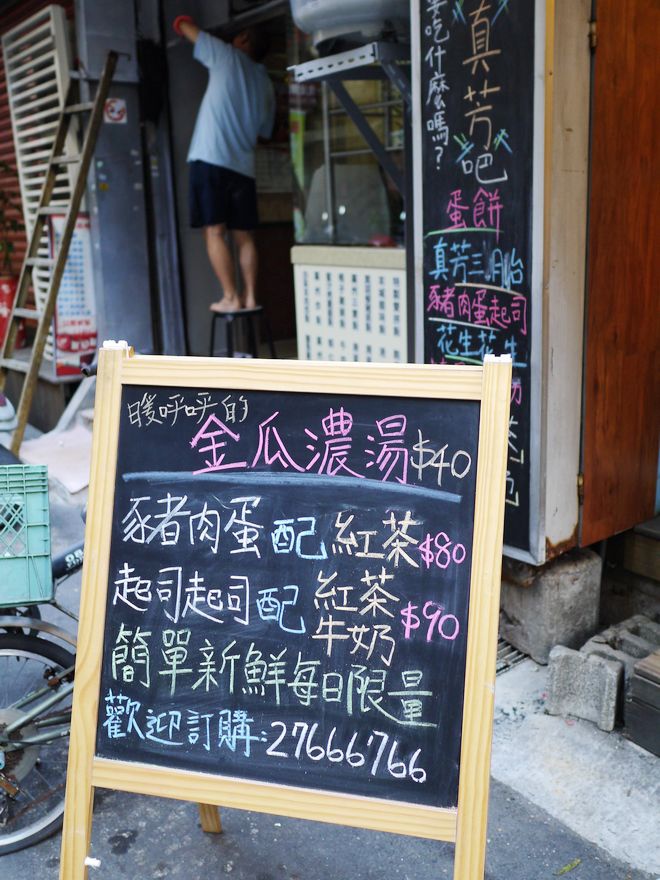 要吃什麼嗎？
真芳吧
蛋餅
真芳三明治
豬肉蛋起司
花生花生
暖呼呼的
金瓜濃湯$40
豬肉蛋配紅茶$80
起司起司配紅茶
牛奶$90
簡單新鮮每日限量
歡迎訂購:27666766